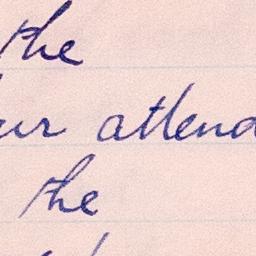 the
ur attend
the